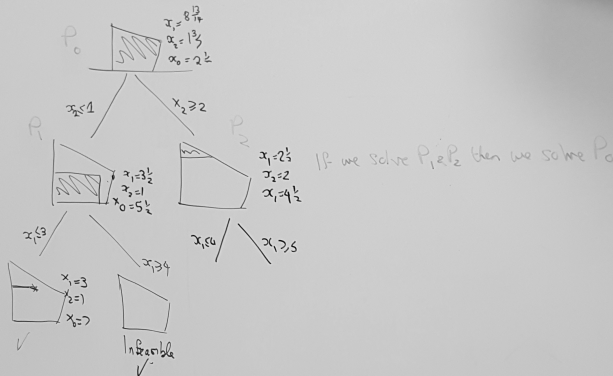 P₀
x₁=8 13/14
x₂=1 3/7
x₀=2 1/2
x₂≤1
x₂≥2
P₁
x₁=3 1/2
x₂=1
x₀=5 1/2
P₂
x₁=2 1/2
x₂=2
x₁=4 1/2
If we solve P₁&P₂ then we solve P₀
x₁≤3
x₁≥4
x₁≥5
x₁=3
x₂=1
Infeasible